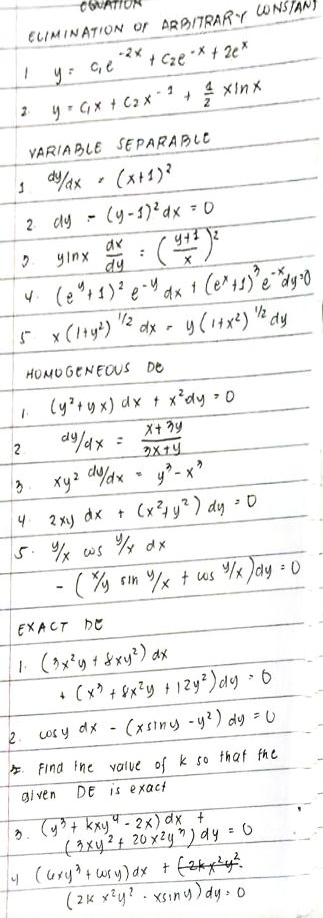 EQUATION
ELIMINATION OF ARBITRARY CONSTANT
1 y = c₁e^-2x + c₂e^-x + 2e^x
2. y = c₁x + c₂x^-1 + 1/2 x ln x
VARIABLE SEPARABLE
1 dy/dx = (x+1)²
2. dy - (y-1)² dx = 0
3. y ln x dx/dy = ((y+1)/x)²
4. (e^y + 1)² e^-y dx + (e^x + 1)³ e^-x dy = 0
5 x(1+y²)^1/2 dx = y(1+x²)^1/2 dy
HOMOGENEOUS DE
1. (y² + yx) dx + x² dy = 0
2. dy/dx = (x+3y)/(3x+y)
3. xy² dy/dx = y³ - x³
4. 2xy dx + (x² + y²) dy = 0
5. y/x cos y/x dx
- (x/y sin y/x + cos y/x) dy = 0
EXACT DE
1. (3x²y + 8xy²) dx
+ (x³ + 8x²y + 12y²) dy = 0
2. cos y dx - (x sin y - y²) dy = 0
I. Find the value of k so that the
given DE is exact
3. (y³ + kxy⁴ - 2x) dx +
(3xy² + 20x²y³) dy = 0
4 (6xy³ + cos y) dx + (2kx²y²
(2k x²y² - x sin y) dy = 0